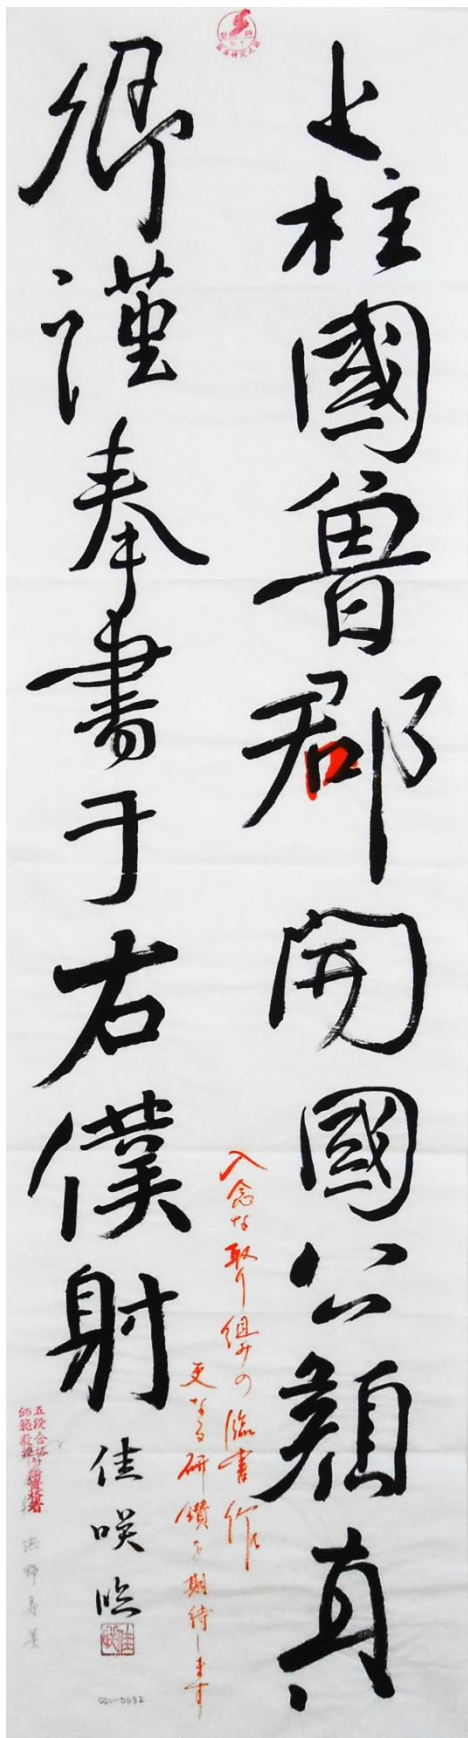 上柱國魯郡開國公顔真
卿謹奉書于右僕射
佳咲臨
入念な取り組みの臨書作
更なる研鑽を期待します
五段合格
師範教授
001-0032